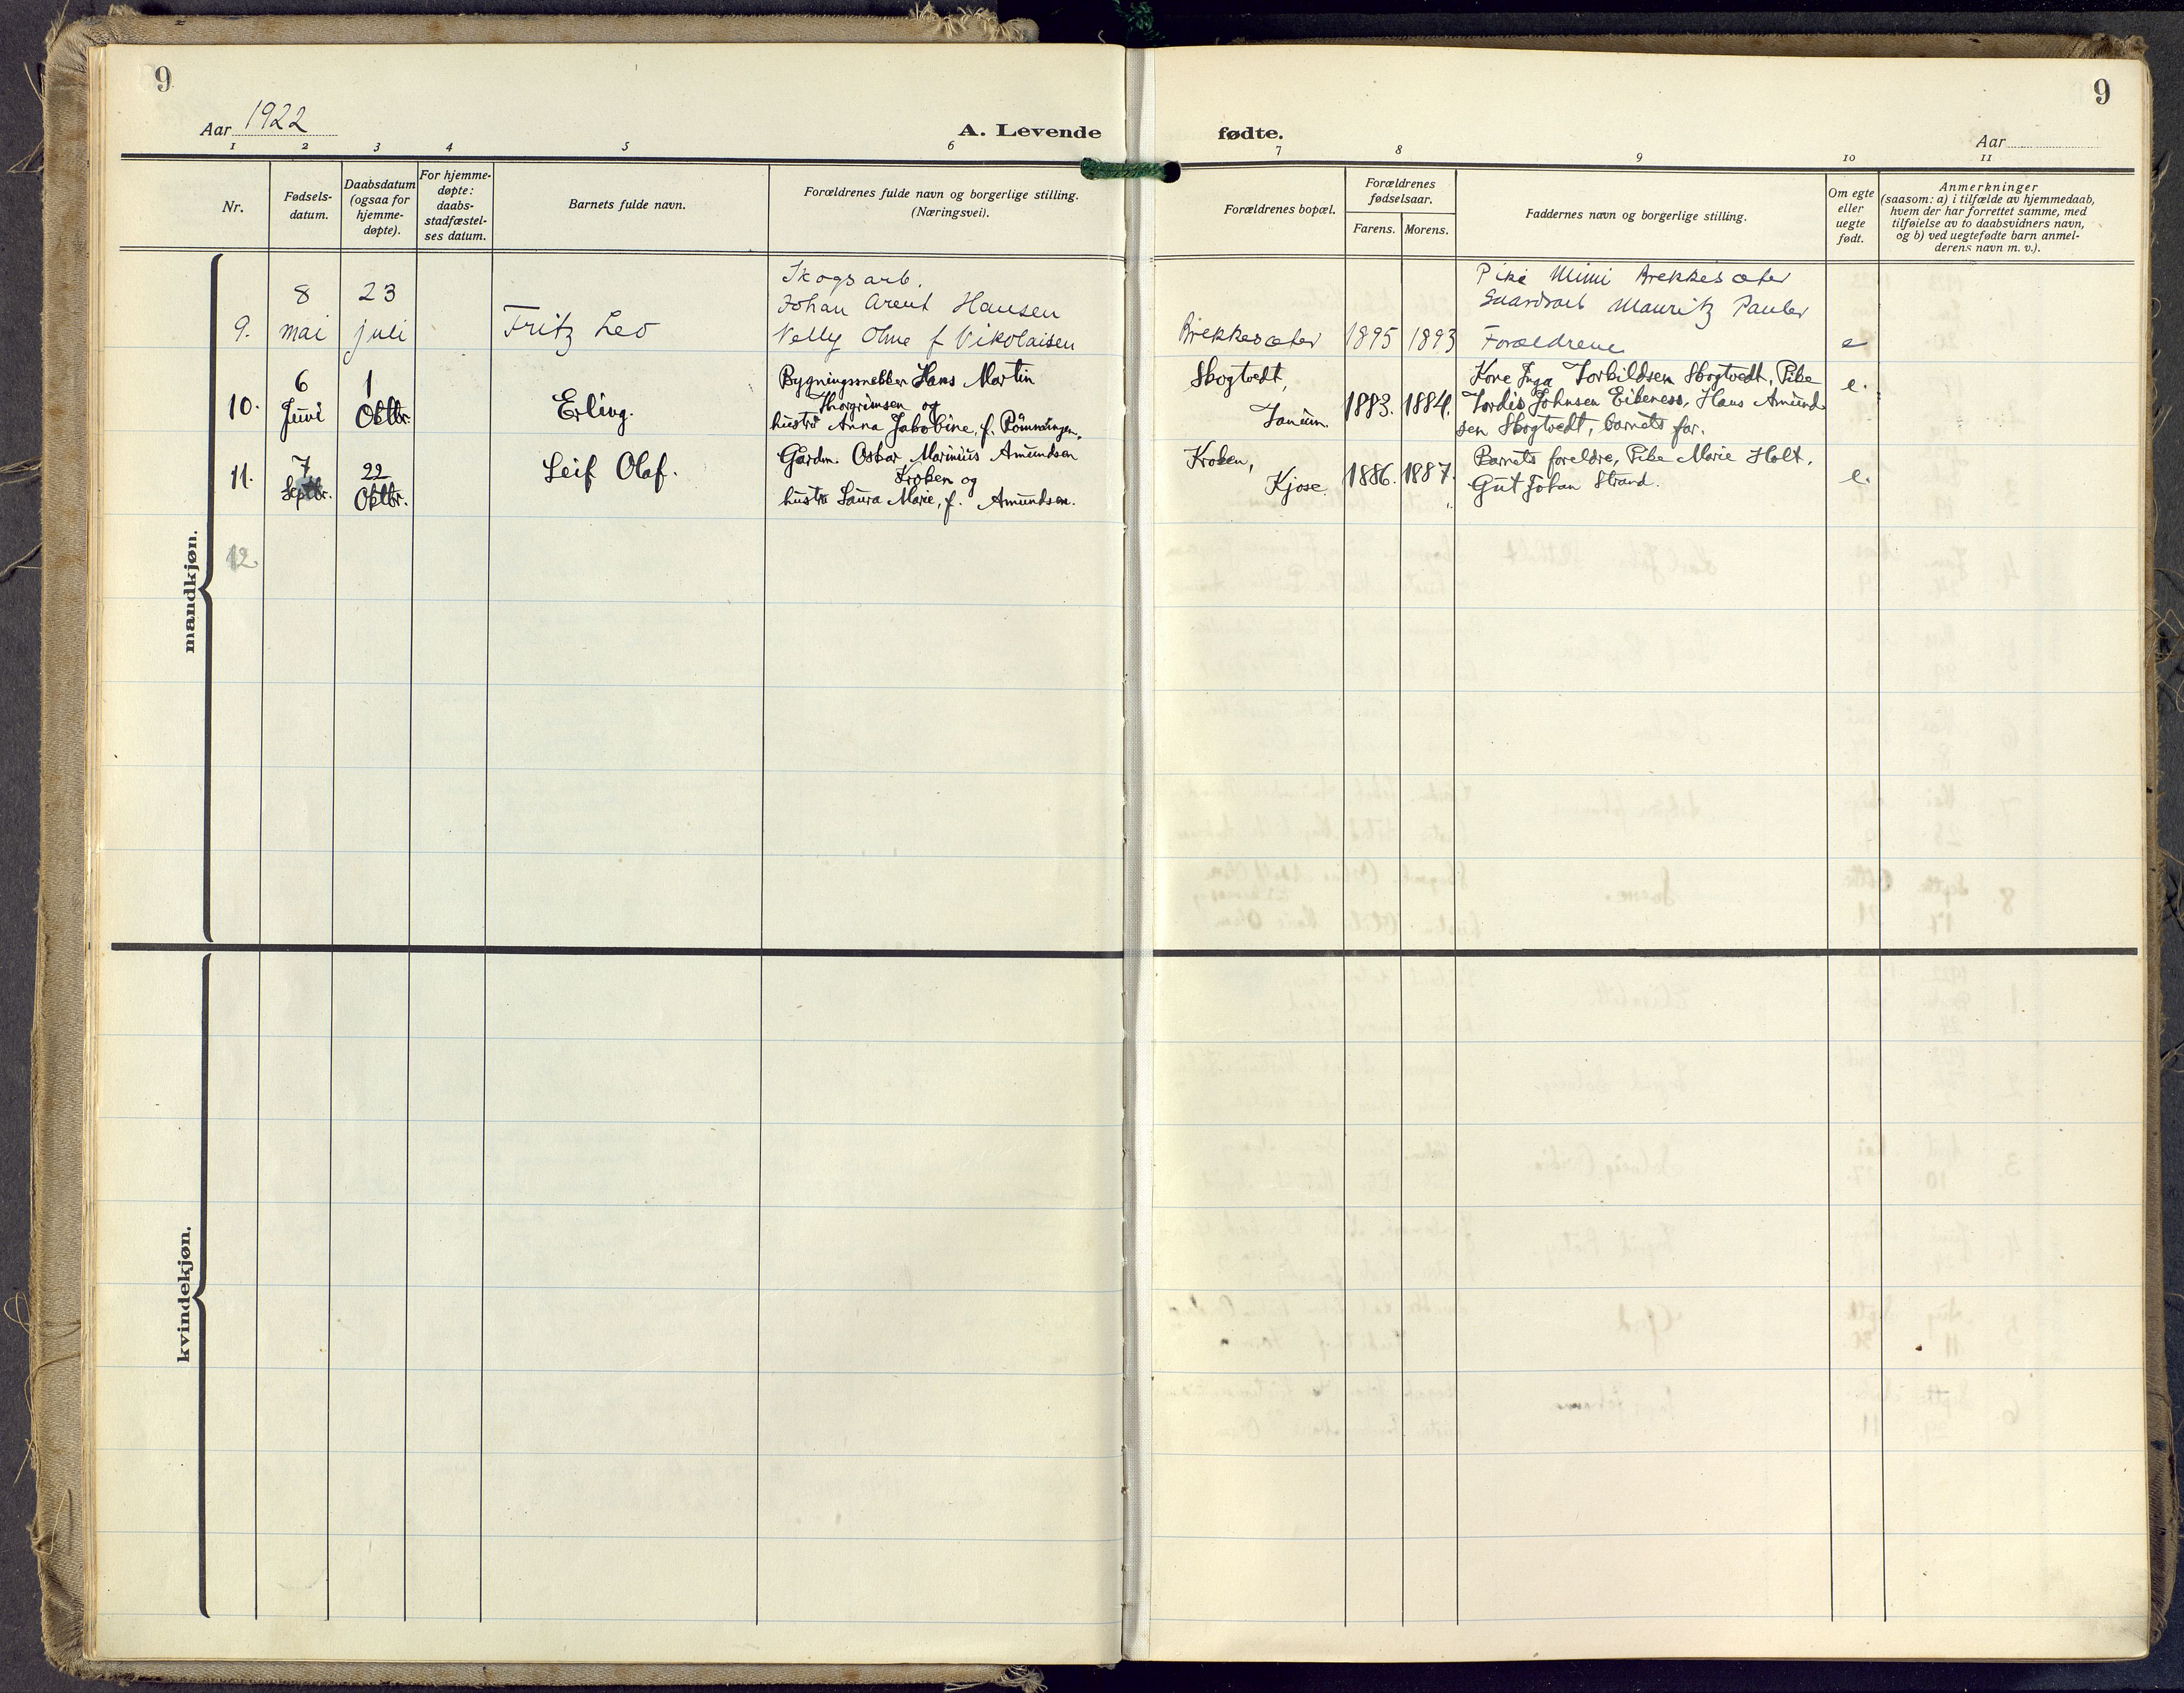 9
Aar 1922
A. Levende
1 2 3 4 5 6
Nr.
Fødsels-
datum.
Daabsdatum
(ogsaa for
hjemme-
døpte).
For hjemme-
døpte:
daabs-
stadfæstel-
ses datum.
Barnets fulde navn.
Forældrenes fulde navn og borgerlige stilling.
(Næringsvei).
mandkjøn.
Skogsarb.
8 23 Johan Arent Hansen
9. mai juli Fritz Leo Nelly Oline f Nikolaisen
6 1 Bygningssnekker Hans Martin
10. Juni Oktbr. Erling. Thorgrimsen og
hustru Anna Jakobine, f. Rønningen.
7 22 Gårdm. Oskar Marinius Amundsen
11. Septbr. Oktbr. Leif Olaf. Kroken og
hustru Laura Marie, f. Amundsen.
12
kvindekjøn.
9
fødte.
Aar
7 8 9 10 11
Forældrenes bopæl.
Forældrenes
fødselsaar.
Farens. Morens.
Faddernes navn og borgerlige stilling.
Om egte
eller
uegte
født.
Anmerkninger
(saasom: a) i tilfælde av hjemmedaab,
hvem der har forrettet samme, med
tilføielse av to daabsvidners navn,
og b) ved uegtefødte barn anmel-
derens navn m. v.).
Pike Mimi Brekkesæter
Gaardsarb Mauritz Pauler
Brekkesæter 1895 1893 Forældrene e
Skogtvedt, Kone Inga Torkildsen Skogtvedt, Pike e.
Tanum. 1883. 1884. Tordis Johnsen Eikeness, Hans Amund-
sen Skogtvedt, barnets far.
Kroken, Barnets foreldre, Pike Marie Holt,
Kjose. 1886. 1887. Gut Johan Strand. e.